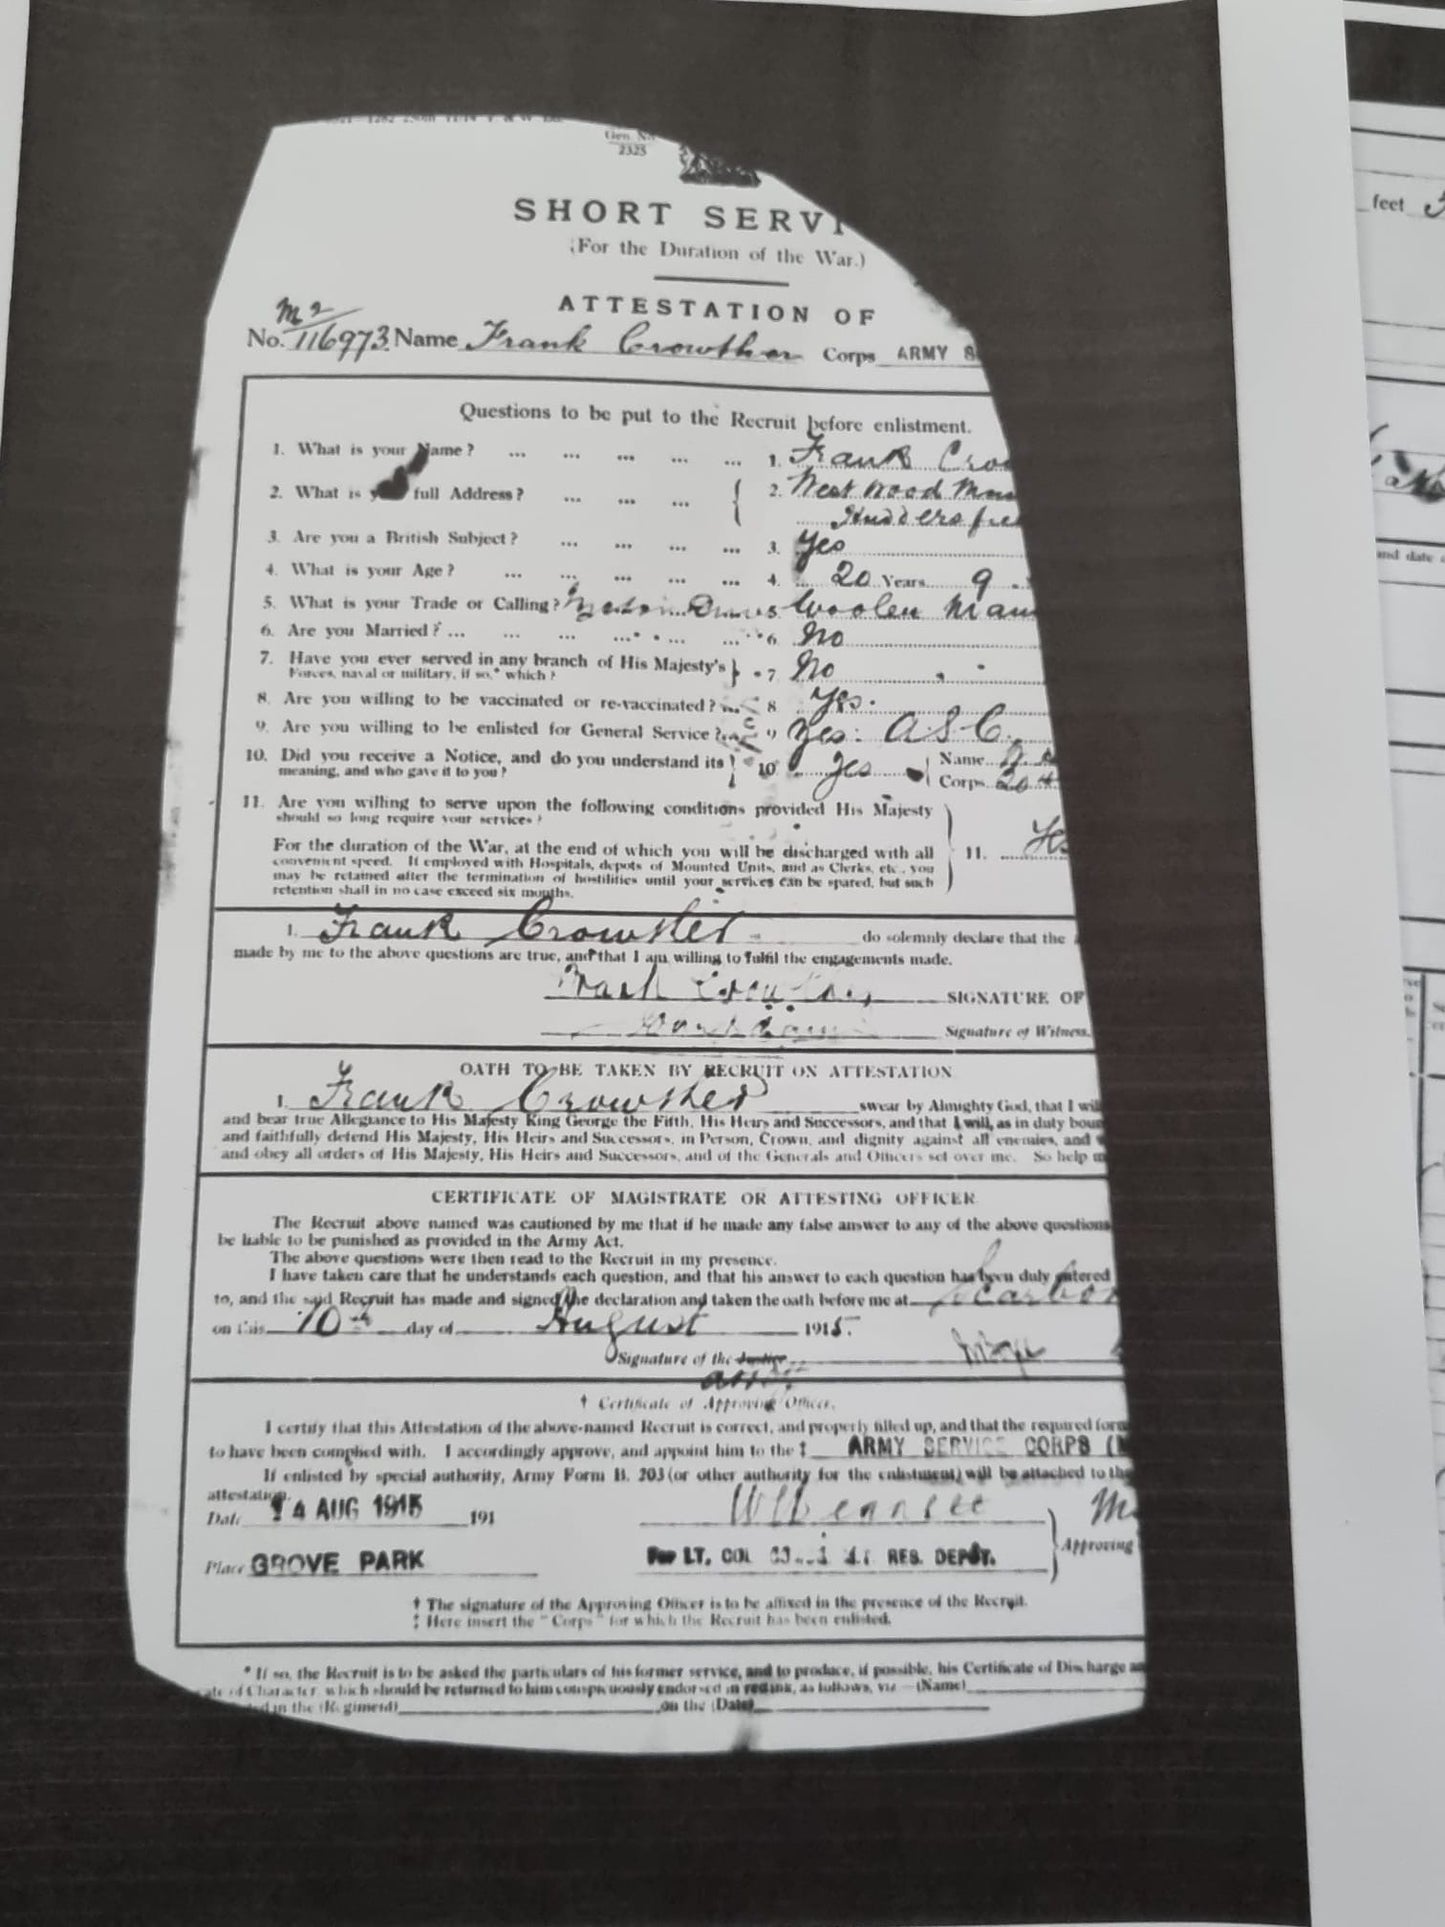 Gen. No.
2323
SHORT SERVI
(For the Duration of the War.)
ATTESTATION OF
M2
No. 116973 Name Frank Crowther Corps ARMY S
Questions to be put to the Recruit before enlistment.
1. What is your Name? ... ... ... ... ... 1. Frank Cro
2. What is full Address? ... ... ... { 2. West Wood
Huddersfie
3. Are you a British Subject? ... ... ... ... 3. Yes
4. What is your Age? ... ... ... ... ... 4. 20 Years 9
5. What is your Trade or Calling? 5. Woolen Man
6. Are you Married? ... ... ... ... ... 6. No
7. Have you ever served in any branch of His Majesty's } 7. No
Forces, naval or military, if so,* which?
8. Are you willing to be vaccinated or re-vaccinated? ... 8. Yes.
9. Are you willing to be enlisted for General Service? 9. Yes: ASC.
10. Did you receive a Notice, and do you understand its } 10. Yes { Name
meaning, and who gave it to you? Corps
11. Are you willing to serve upon the following conditions provided His Majesty
should so long require your services?
For the duration of the War, at the end of which you will be discharged with all } 11.
convenient speed. If employed with Hospitals, depots of Mounted Units, and as Clerks, etc., you
may be retained after the termination of hostilities until your services can be spared, but such
retention shall in no case exceed six months.
I, Frank Crowther do solemnly declare that the
made by me to the above questions are true, and that I am willing to fulfil the engagements made.
SIGNATURE OF
Signature of Witness.
OATH TO BE TAKEN BY RECRUIT ON ATTESTATION
I, Frank Crowther swear by Almighty God, that I wil
and bear true Allegiance to His Majesty King George the Fifth, His Heirs and Successors, and that I will, as in duty boun
and faithfully defend His Majesty, His Heirs and Successors, in Person, Crown, and dignity against all enemies, and
and obey all orders of His Majesty, His Heirs and Successors, and of the Generals and Officers set over me. So help m
CERTIFICATE OF MAGISTRATE OR ATTESTING OFFICER
The Recruit above named was cautioned by me that if he made any false answer to any of the above questions
be liable to be punished as provided in the Army Act.
The above questions were then read to the Recruit in my presence.
I have taken care that he understands each question, and that his answer to each question has been duly entered
to, and the said Recruit has made and signed the declaration and taken the oath before me at Scarbor
on this 10th day of August 1915.
Signature of the Justice
† Certificate of Approving Officer.
I certify that this Attestation of the above-named Recruit is correct, and properly filled up, and that the required form
to have been complied with. I accordingly approve, and appoint him to the ‡ ARMY SERVICE CORPS (M
If enlisted by special authority, Army Form B. 203 (or other authority for the enlistment) will be attached to the
attestation.
Date 14 AUG 1915 191
Approving
Place GROVE PARK For LT. COL RES. DEPÔT.
† The signature of the Approving Officer is to be affixed in the presence of the Recruit.
‡ Here insert the "Corps" for which the Recruit has been enlisted.
* If so, the Recruit is to be asked the particulars of his former service, and to produce, if possible, his Certificate of Discharge an
ate of Character, which should be returned to him conspicuously endorsed in red ink, as follows, viz.—(Name)
in the (Regiment) on the (Date)
feet
and date